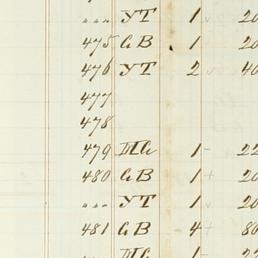 „ YT 1 20
475 GB 1 20
476 YT 2 40
477
478
479 IIIG 1 22
480 GB 1 20
„ YT 1 20
481 GB 4 80
„ IIIG 1 22